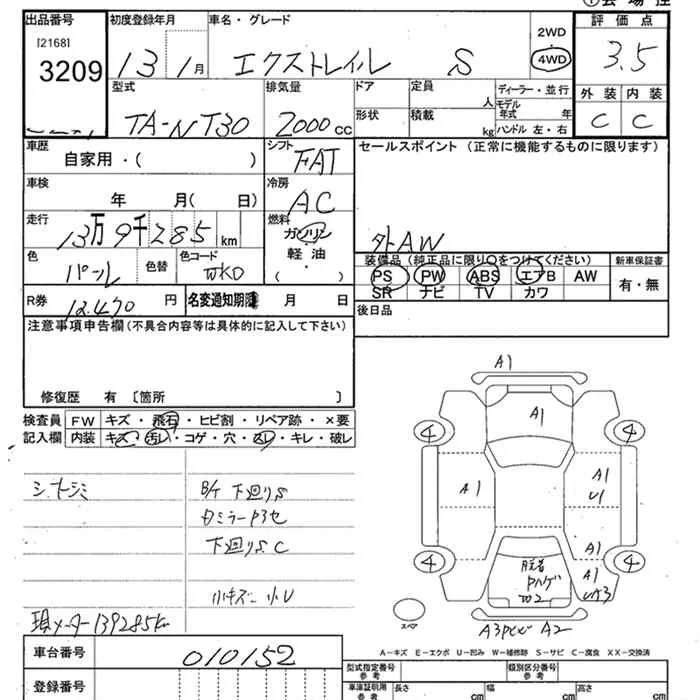 出品番号 初度登録年月 車名・グレード 2WD 評価点
[2168]
3209 13 1月 エクストレイル S 4WD 3.5
型式 排気量 ドア 定員 ディーラー・並行 外装 内装
人 モデル年式 年
TA-NT30 2000cc 形状 積載 kg ハンドル 左・右 C C
車歴 自家用・( ) シフト FAT セールスポイント (正常に機能するものに限ります)
車検 年 月( 日) 冷房 AC
走行 13万9千285km 燃料 ガソリン 軽油 ( ) 外AW
色 パール 色替 色コード WK0 装備品 (純正品に限り○をつけてください) 新車保証書
PS PW ABS エアB AW 有・無
SR ナビ TV カワ
R券 12,470円 名変通知期限 月 日 後日品
注意事項申告欄(不具合内容等は具体的に記入して下さい)
修復歴 有 〔箇所 〕
検査員 FW キズ・飛石・ヒビ割・リペア跡・×要
記入欄 内装 キズ・汚レ・コゲ・穴・スレ・キレ・破レ
B/T 下廻りS
下廻りS C
小キズ 小U
現メーター139285km
A1
A1
4 4
A1 A1
U1
A1
A1
4 4
W2
スペア
A2
A-キズ E-エクボ U-凹み W-補修跡 S-サビ C-腐食 XX-交換済
車台番号 010152 型式指定番号 参考 類別区分番号 参考
登録番号 車庫証明用 参考 長さ cm 幅 cm 高さ cm